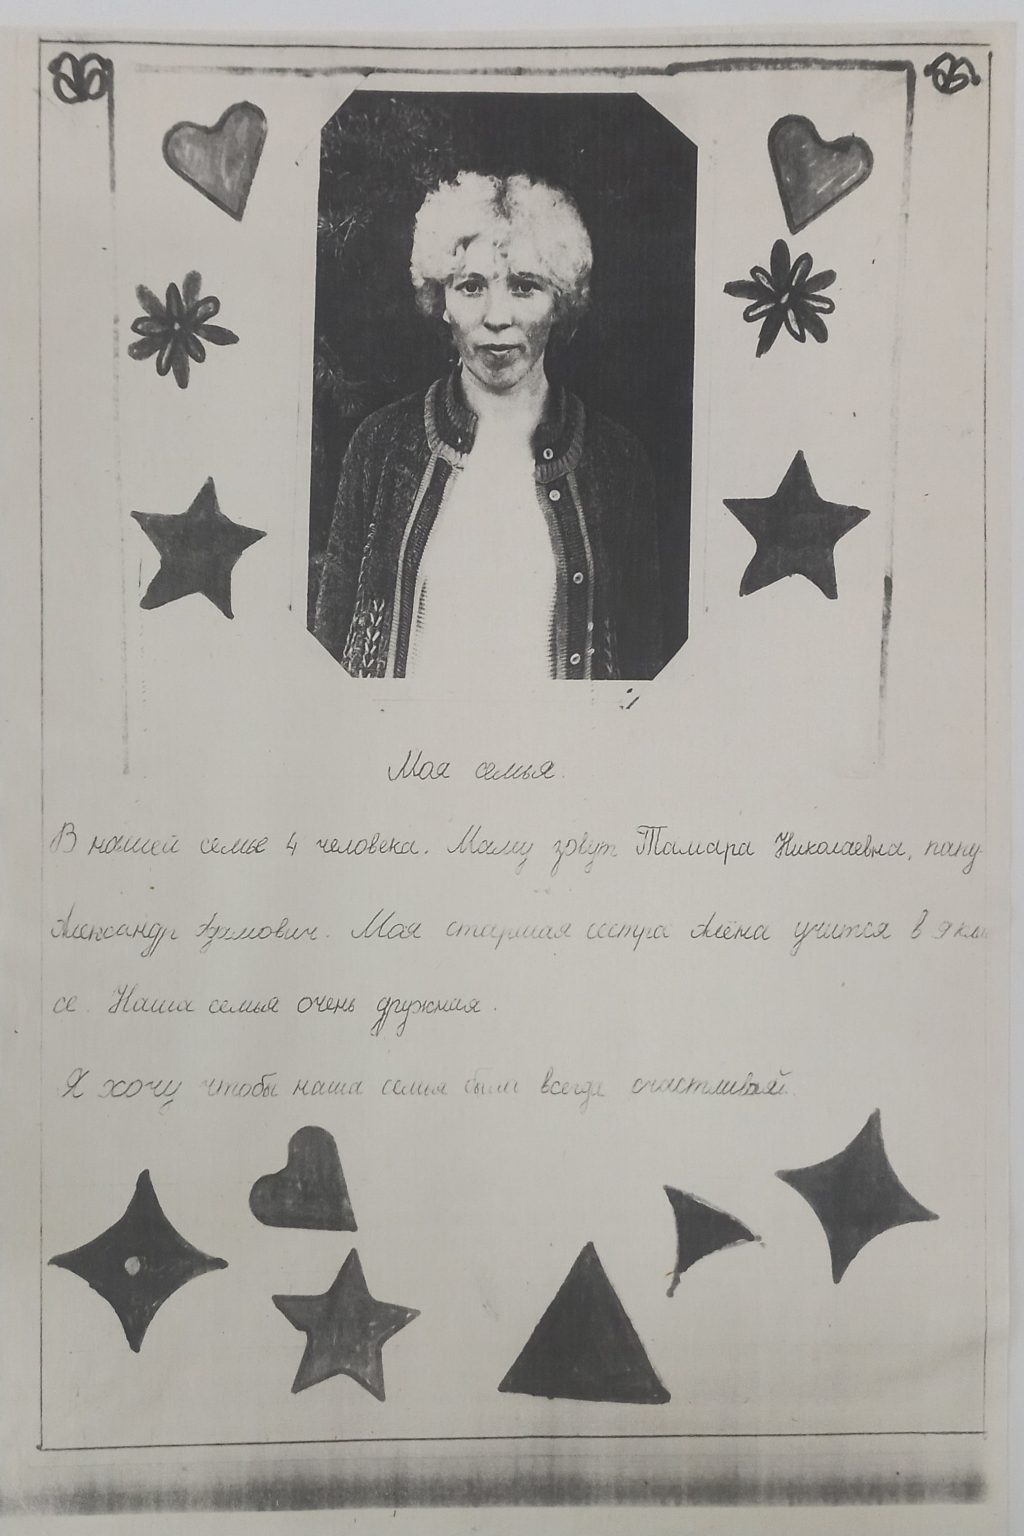 Моя семья.
В нашей семье 4 человека. Маму зовут Тамара Николаевна, папу
Александр Азамович. Моя старшая сестра Алёна учится в 9 клас
се. Наша семья очень дружная.
Я хочу чтобы наша семья была всегда счастливой.